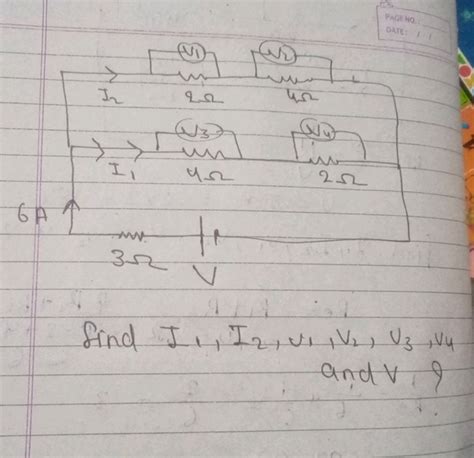 PAGE NO.
DATE: / /
V1 V2
I2 2Ω 4Ω
V3 V4
I1 4Ω 2Ω
6A
3Ω V
find I1, I2, V1, V2, V3, V4
and V ?